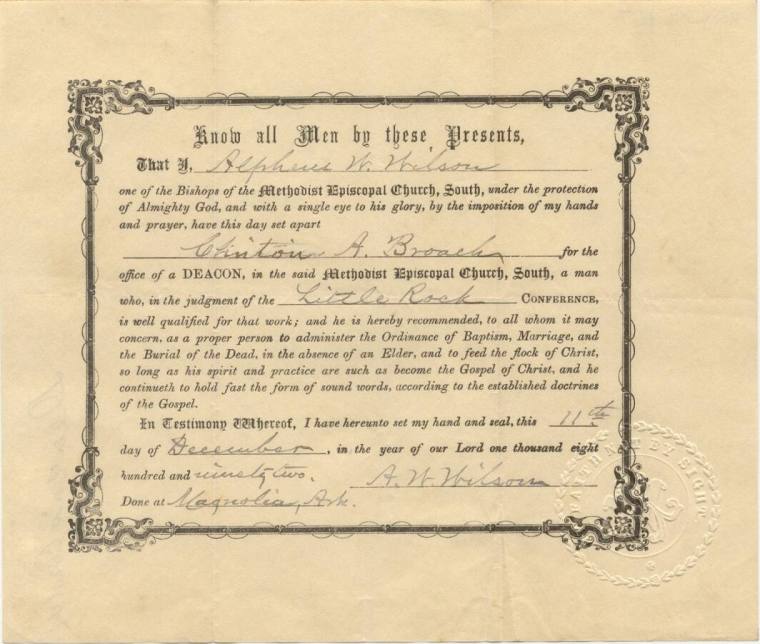 Know all Men by these Presents,
That I, Alpheus W. Wilson
one of the Bishops of the Methodist Episcopal Church, South, under the protection
of Almighty God, and with a single eye to his glory, by the imposition of my hands
and prayer, have this day set apart
Clinton A. Broach for the
office of a DEACON, in the said Methodist Episcopal Church, South, a man
who, in the judgment of the Little Rock CONFERENCE,
is well qualified for that work; and he is hereby recommended, to all whom it may
concern, as a proper person to administer the Ordinance of Baptism, Marriage, and
the Burial of the Dead, in the absence of an Elder, and to feed the flock of Christ,
so long as his spirit and practice are such as become the Gospel of Christ, and he
continueth to hold fast the form of sound words, according to the established doctrines
of the Gospel.
In Testimony Whereof, I have hereunto set my hand and seal, this 11th
day of December, in the year of our Lord one thousand eight
hundred and ninety two. A. W. Wilson
Done at Magnolia, Ark.